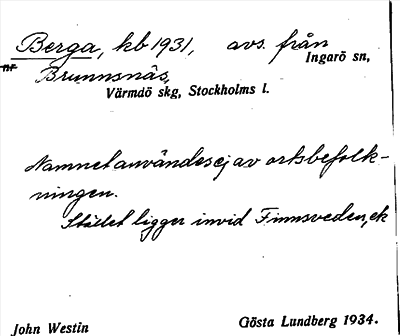 Berga, kb 1931, avs. från
Ingarö sn,
nr
Brunnsnäs,
Värmdö skg, Stockholms l.
Namnet användes ej av ortsbefolk-
ningen.
Stället ligger invid Finnsveden, ek
John Westin
Gösta Lundberg 1934.